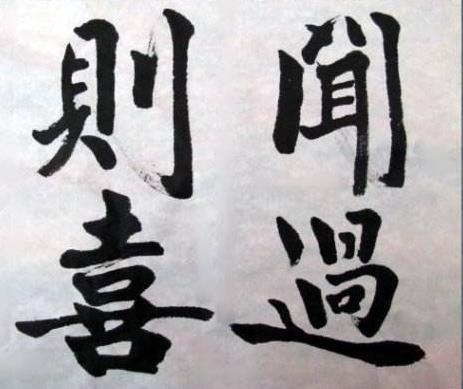 聞過
則喜